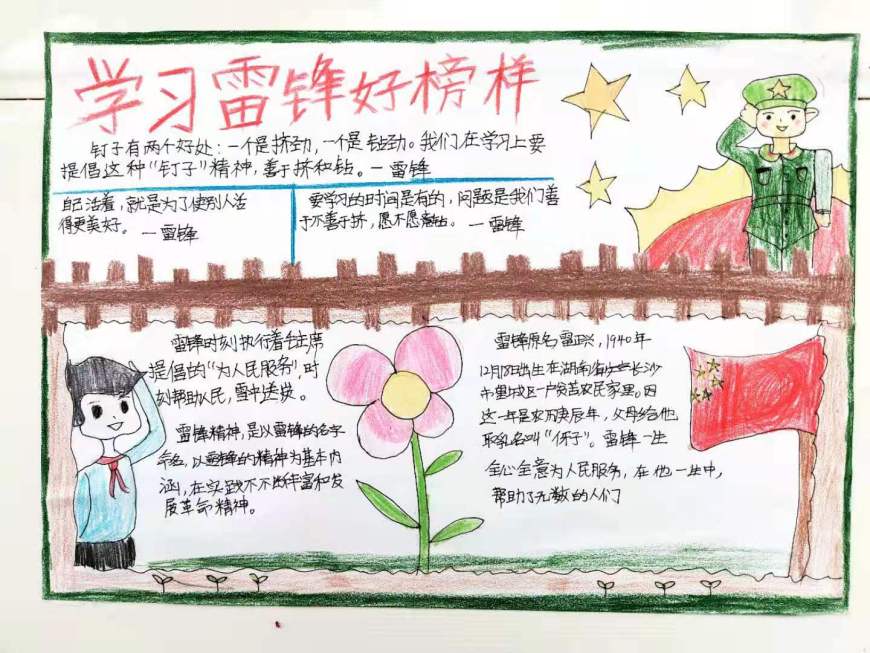 学习雷锋好榜样
钉子有两个好处：一个是挤劲，一个是钻劲。我们在学习上要
提倡这种“钉子”精神，善于挤和钻。一雷锋
自己活着，就是为了使别人活
得更美好。 一雷锋
要学习的时间是有的，问题是我们善
于不善于挤，愿不愿意钻。 一雷锋
雷锋时刻执行着毛主席
提倡的“为人民服务”，时
刻帮助人民，雪中送炭。
雷锋精神，是以雷锋的名字
命名，以雷锋的精神为基本内
涵，在实践不不断丰富和发
展革命精神。
雷锋原名雷正兴，1940年
12月18日出生在湖南省长沙
市望城区一户贫苦农民家里。因
这一年是农历庚辰年，父母给他
取乳名叫“伢子”。雷锋一生
全心全意为人民服务，在他一生中，
帮助了无数的人们